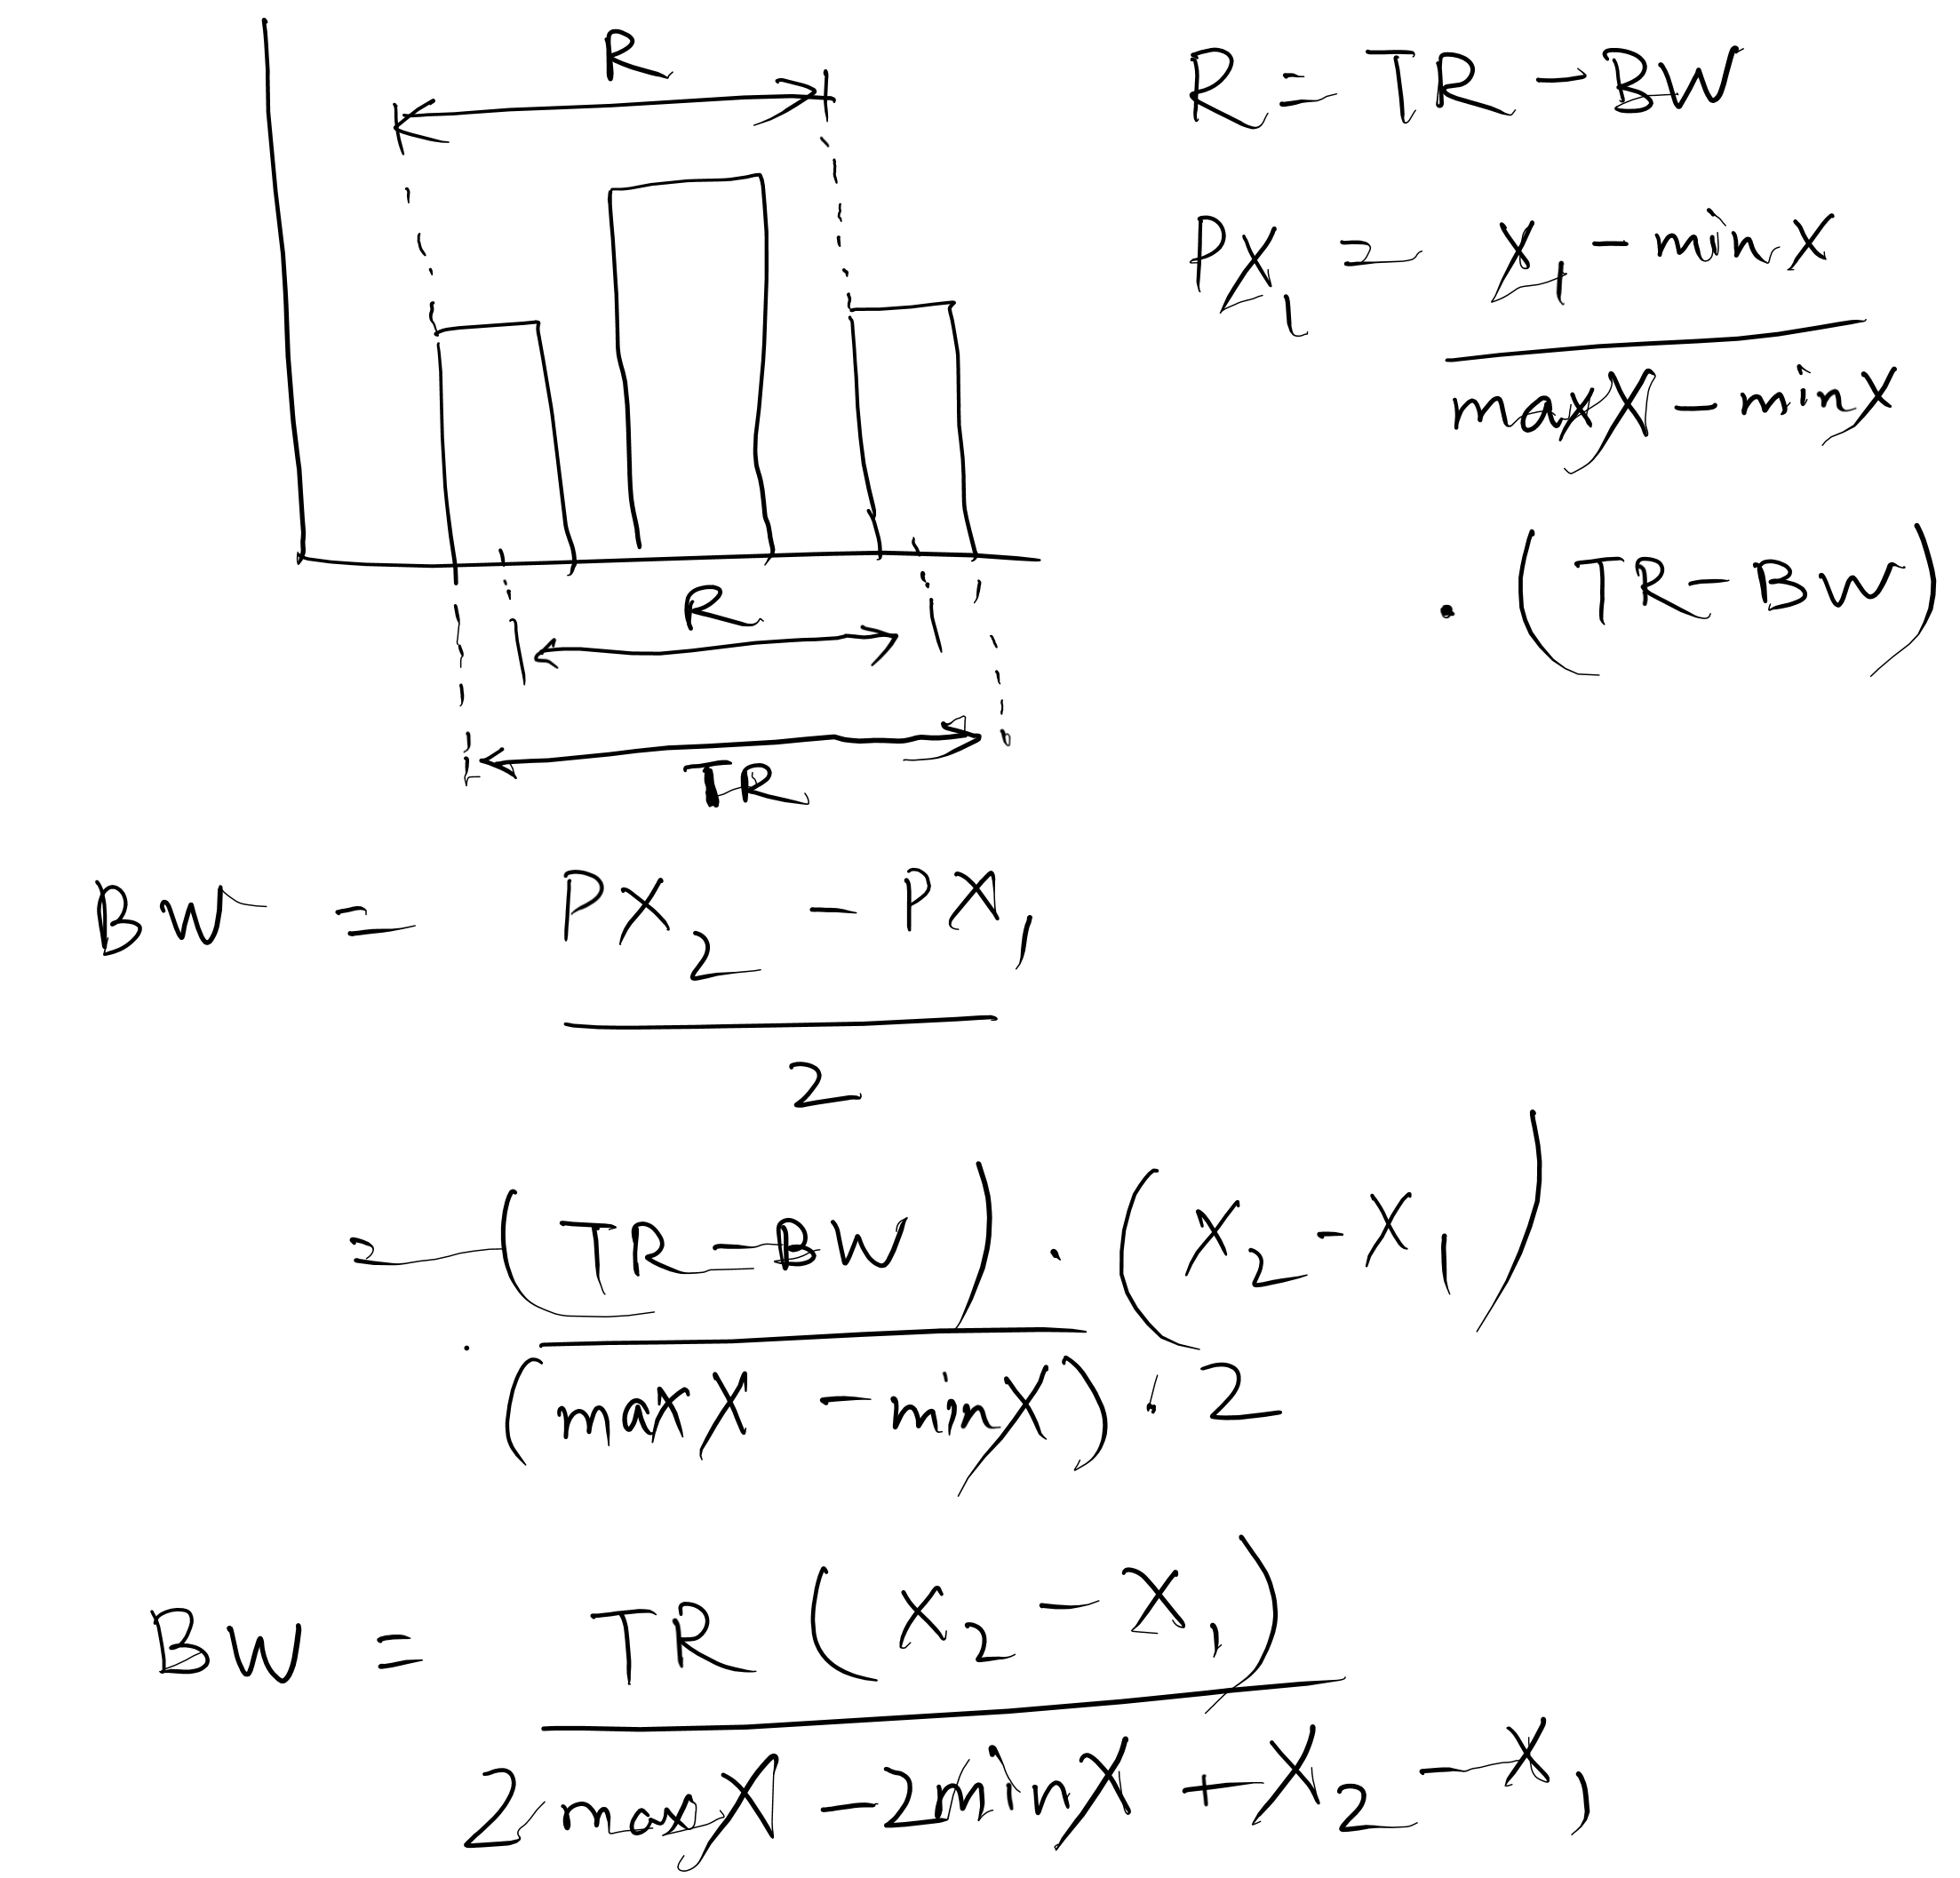 R
R = TR - BW
PX₁ = X₁ - min X
max X - min X
. (TR - BW)
R
TR
BW = PX₂ - PX₁
2
= (TR - BW) . (X₂ - X₁)
(max X - min X) . 2
BW = TR (X₂ - X₁)
2 max X - 2 min X + X₂ - X₁